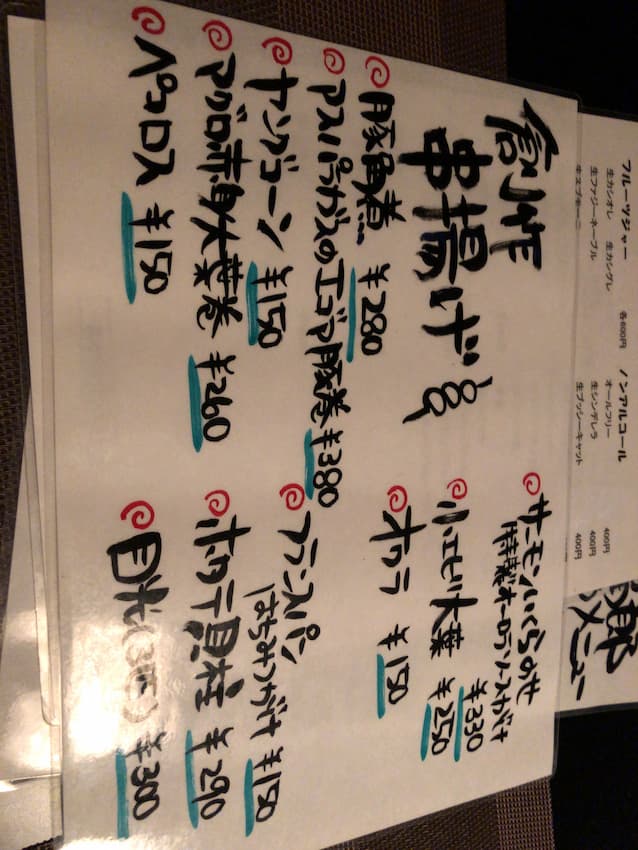 創作
串揚げ
豚角煮 ¥280
アスパラガスのエゴマ豚巻 ¥380
ヤングコーン ¥150
マグロ赤身大葉巻 ¥260
ペコロス ¥150
サーモンいくらのせ
特製オーロラソースがけ
¥330
小エビ大葉 ¥250
オクラ ¥150
フランスパン
はちみつがけ ¥150
ホタテ貝柱 ¥290
目光(3匹) ¥300
フルーツジャー 各600円
生カシオレ 生カシグレ
生ファジーネーブル
ノンアルコール
オールフリー 400円
生シンデレラ 400円
生プッシーキャット 400円
郎
メニュー